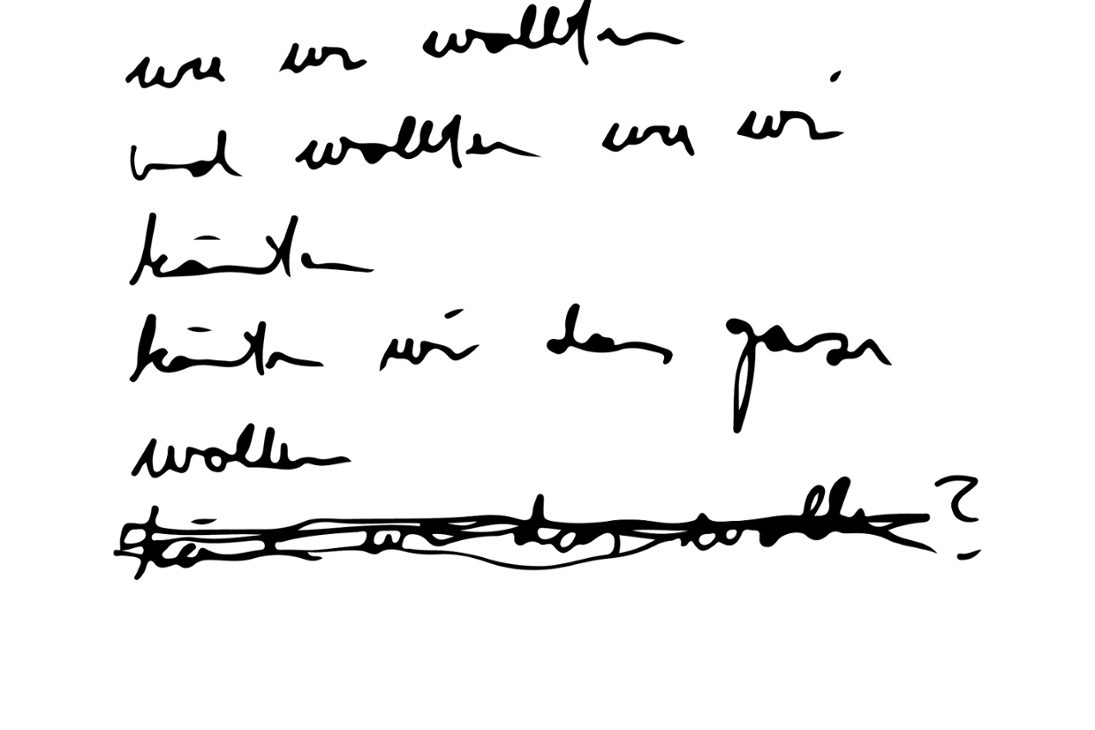 wie wir wollten
und wollten wie wir
könnten
könnten wir denn
wollen
?